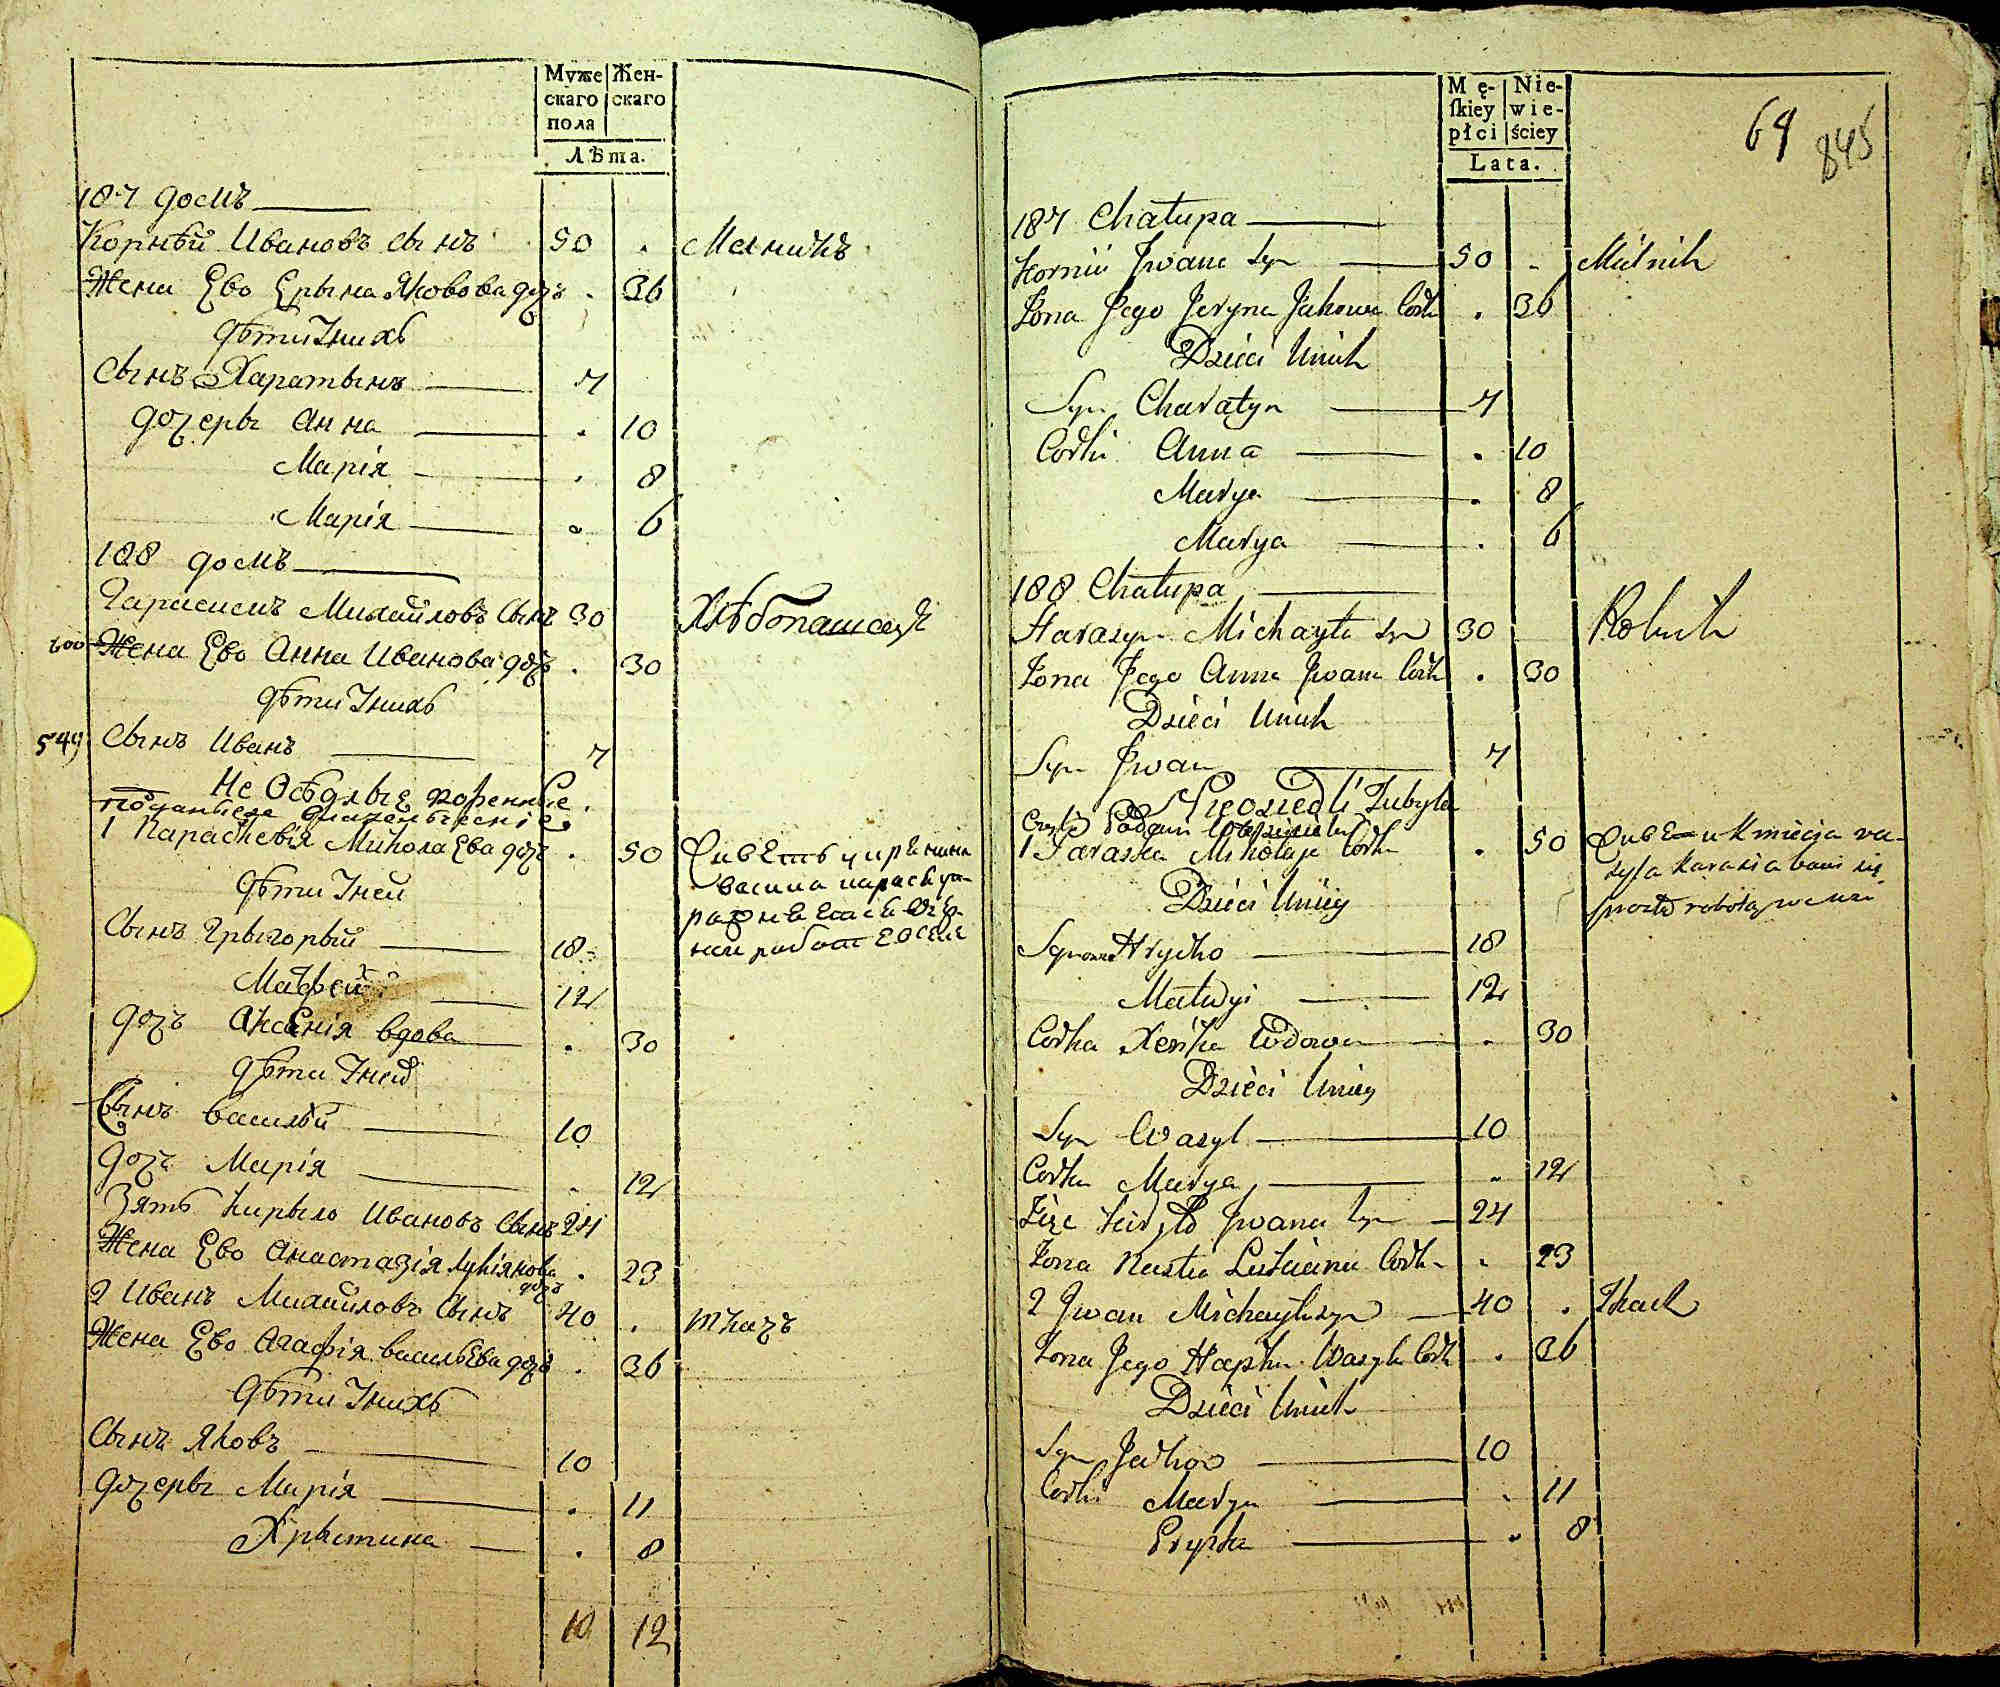 Муже Жен-
скаго скаго
пола
Лѣта.
187 домъ
Корнѣй Ивановъ сынъ 50 . Мелникъ
Жена Ево Ерына Яковова дочь . 36
Дѣти Унихъ
Сынъ Харатынъ 7
Дочеры Анна . 10
Марія . 8
Марія . 6
188 домъ
Гарасимъ Михайловъ Сынъ 30 Хлѣбопашецъ
600 Жена Ево Анна Иванова дочь . 30
Дѣти Унихъ
549 Сынъ Иванъ 7
Не Осѣдлые коренные
1 Параскевія Миколаева дочь . 50
Дѣти Уней
Сынъ Грыгорый 18
Мафей 12
Дочъ Аксенія вдова . 30
Дѣти Уней
Сынъ Василѣй 10
Дочъ Марія . 12
Зять Кирыло Ивановъ Сынъ 24
Жена Ево Анастазія Лукіянова дочъ . 23
2 Иванъ Михайловъ Сынъ 40 . ткачъ
Жена Ево Агафія васильева дочъ . 36
Дѣти Унихъ
Сынъ Яковъ 10
Дочеры Марія . 11
Хрыстина . 8
10 12
Mę- Nie-
skiey wie-
płci ściey
Lata.
64 845
187 Chałupa
Kornii Jwana Syn 50 . Milnik
Żona Jego Jeryna Jakowa Corka . 36
Dzieci Unich
Syn Charatyn 7
Corki Anna . 10
Marya . 8
Marya . 6
188 Chałupa
Harasym Michayła Syn 30 Rolnik
Żona Jego Anna Jwana Corka . 30
Dzieci Unich
Syn Jwan 7
Nieosiedli
1 Paraska Mikołaja Corka . 50
Dzieci Uniey
Synowie Hryćko 18
Matwyi 12
Corka Xeńka Wdowa . 30
Dzieci Uniey
Syn Wasyl 10
Corka Marya . 12
Zięć Kiryło Jwana Syn 24
Żona Nastia Łukiana Corka . 23
2 Jwan Michayła syn 40 . Tkach
Żona Jego Hapka Wasyla Corka . 36
Dzieci Unich
Syn Jaćko 10
Corki Marya . 11
. 8